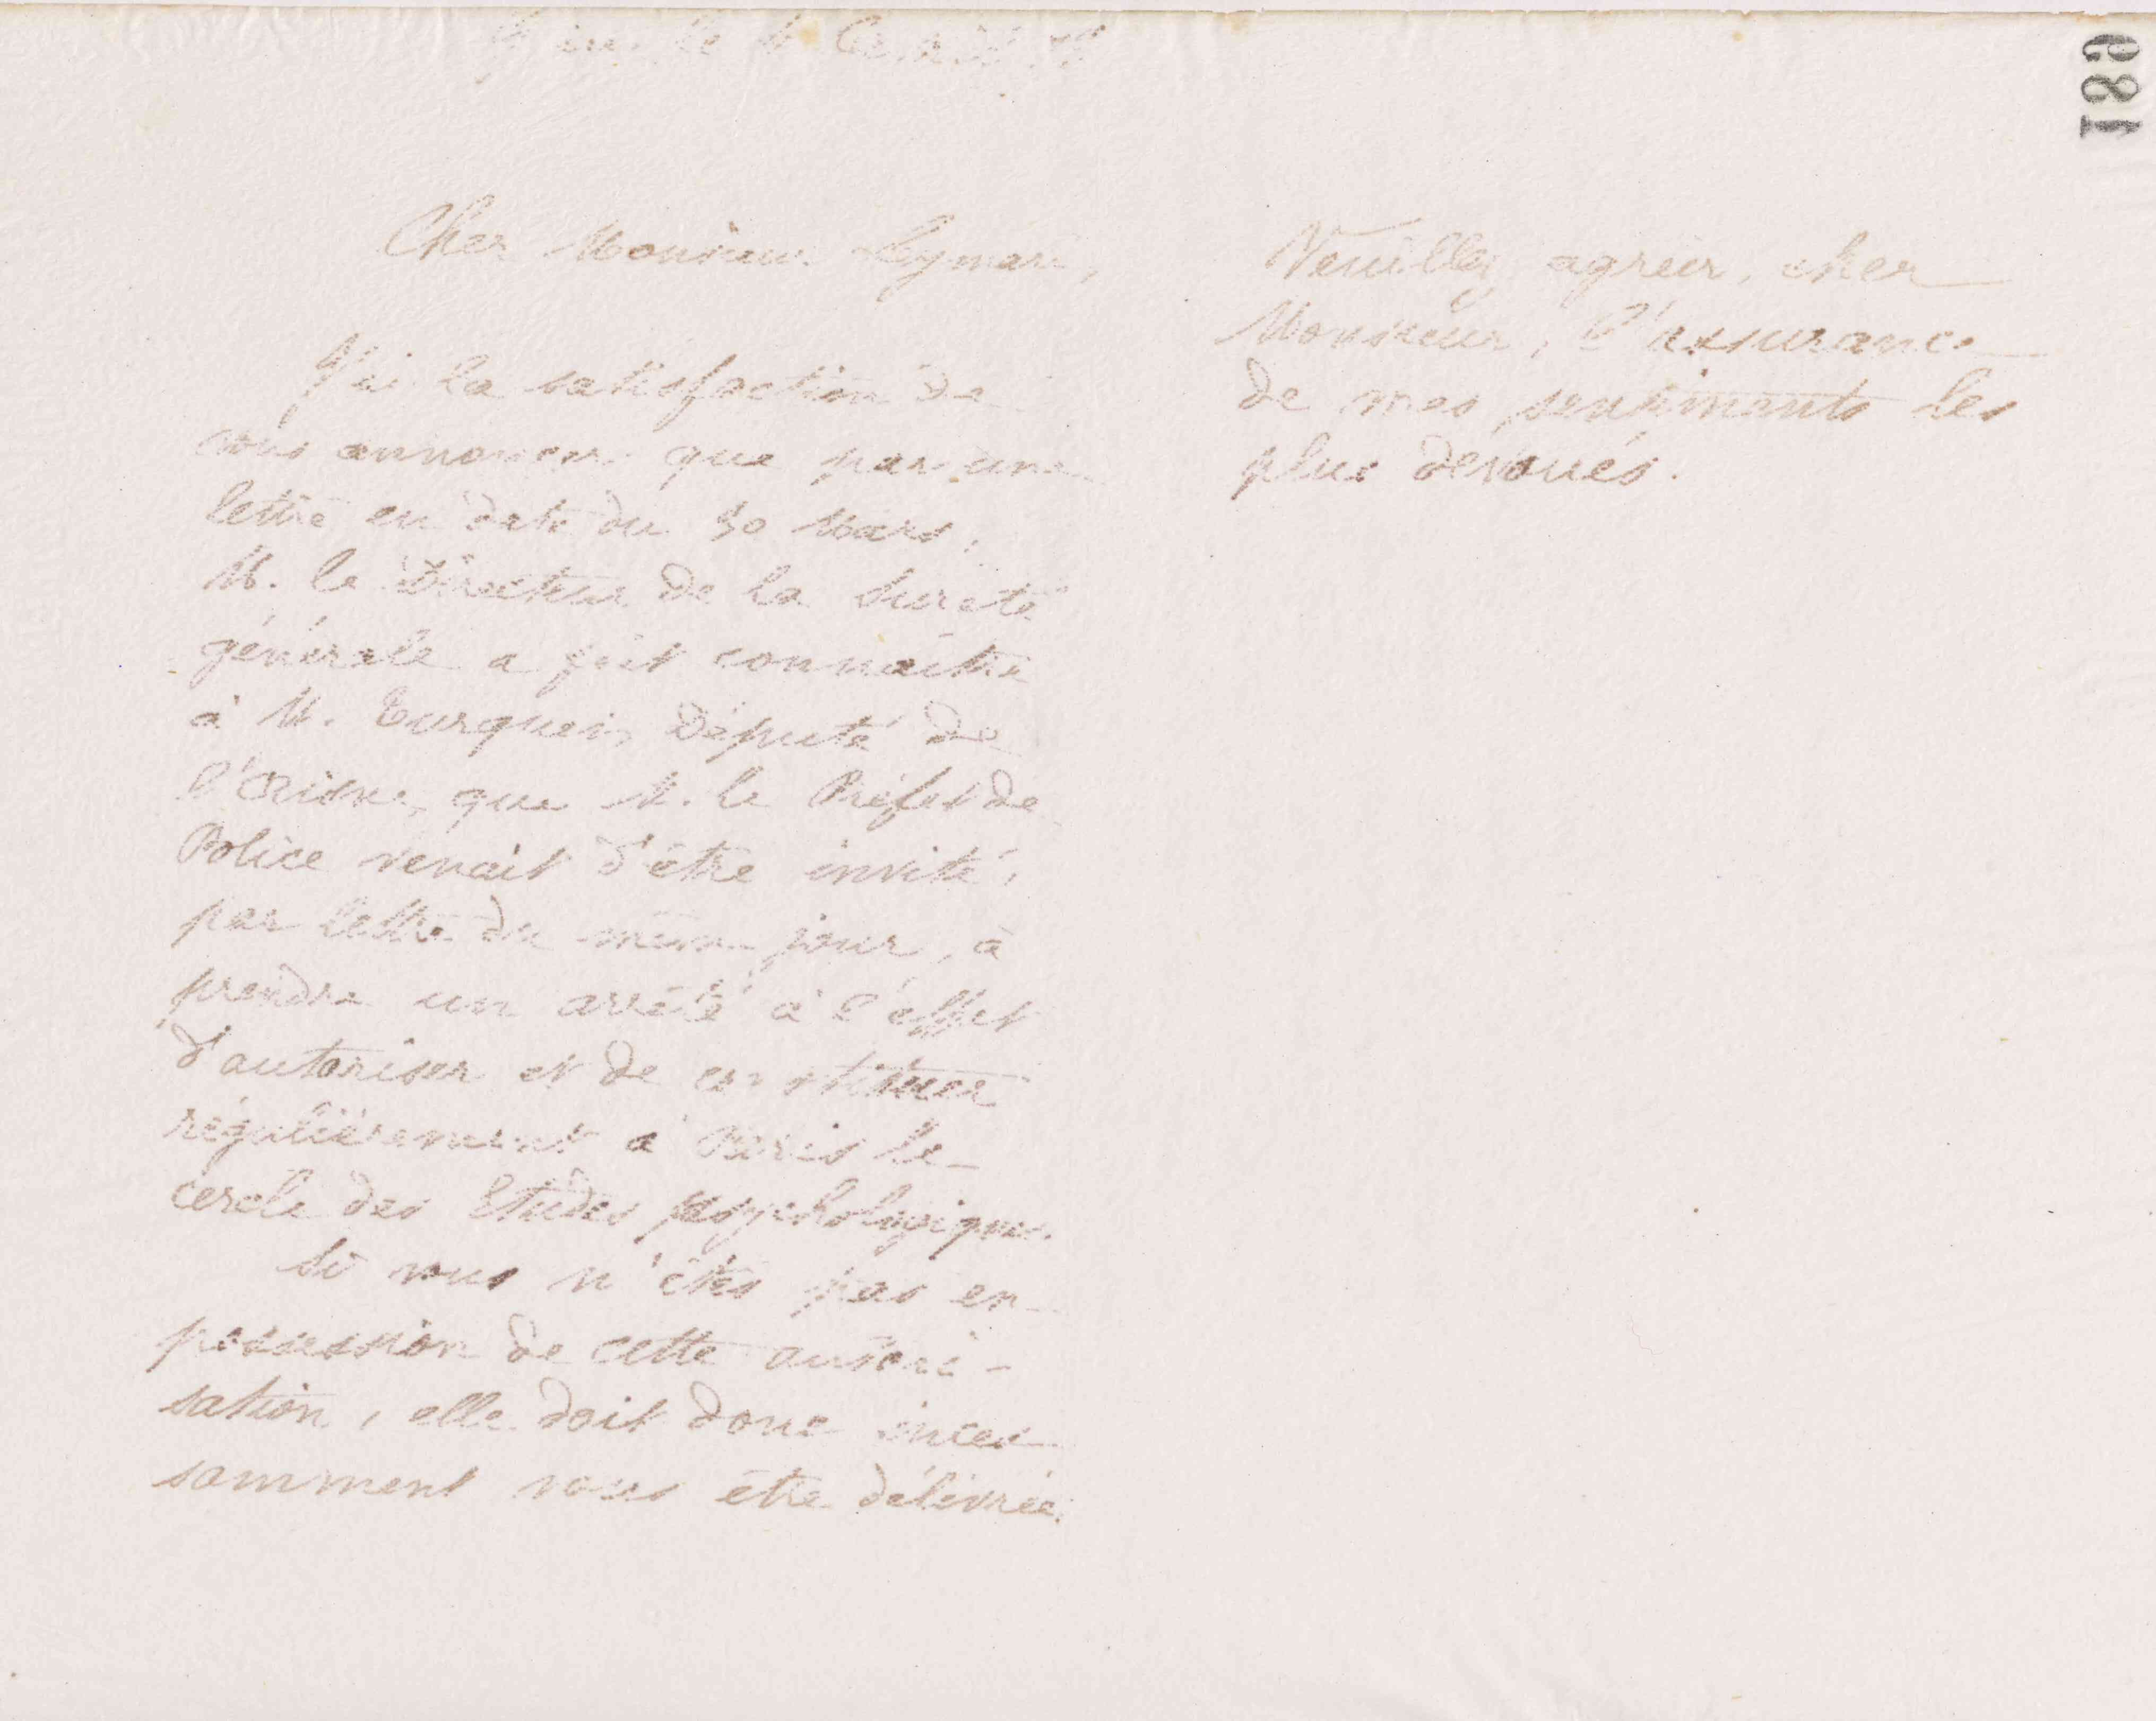 le
189
Cher Monsieur Leymarie,
J'ai la satisfaction de
vous annoncer que par une
lettre en date du 30 Mars,
M. le Directeur de la Sureté
générale a fait connaître
à M. Turquet, Député de
l'Aisne, que M. le Préfet de
Police venait d'être invité,
par lettre du même jour, à
prendre un arrêté à l'effet
d'autoriser et de constituer
régulièrement à Paris le
cercle des Etudes psychologiques.
Si vous n'êtes pas en
possession de cette autori-
sation, elle doit donc inces
samment vous être délivrée.
Veuillez agréer, cher
Monsieur, l'assurance
de mes sentiments les
plus dévoués.